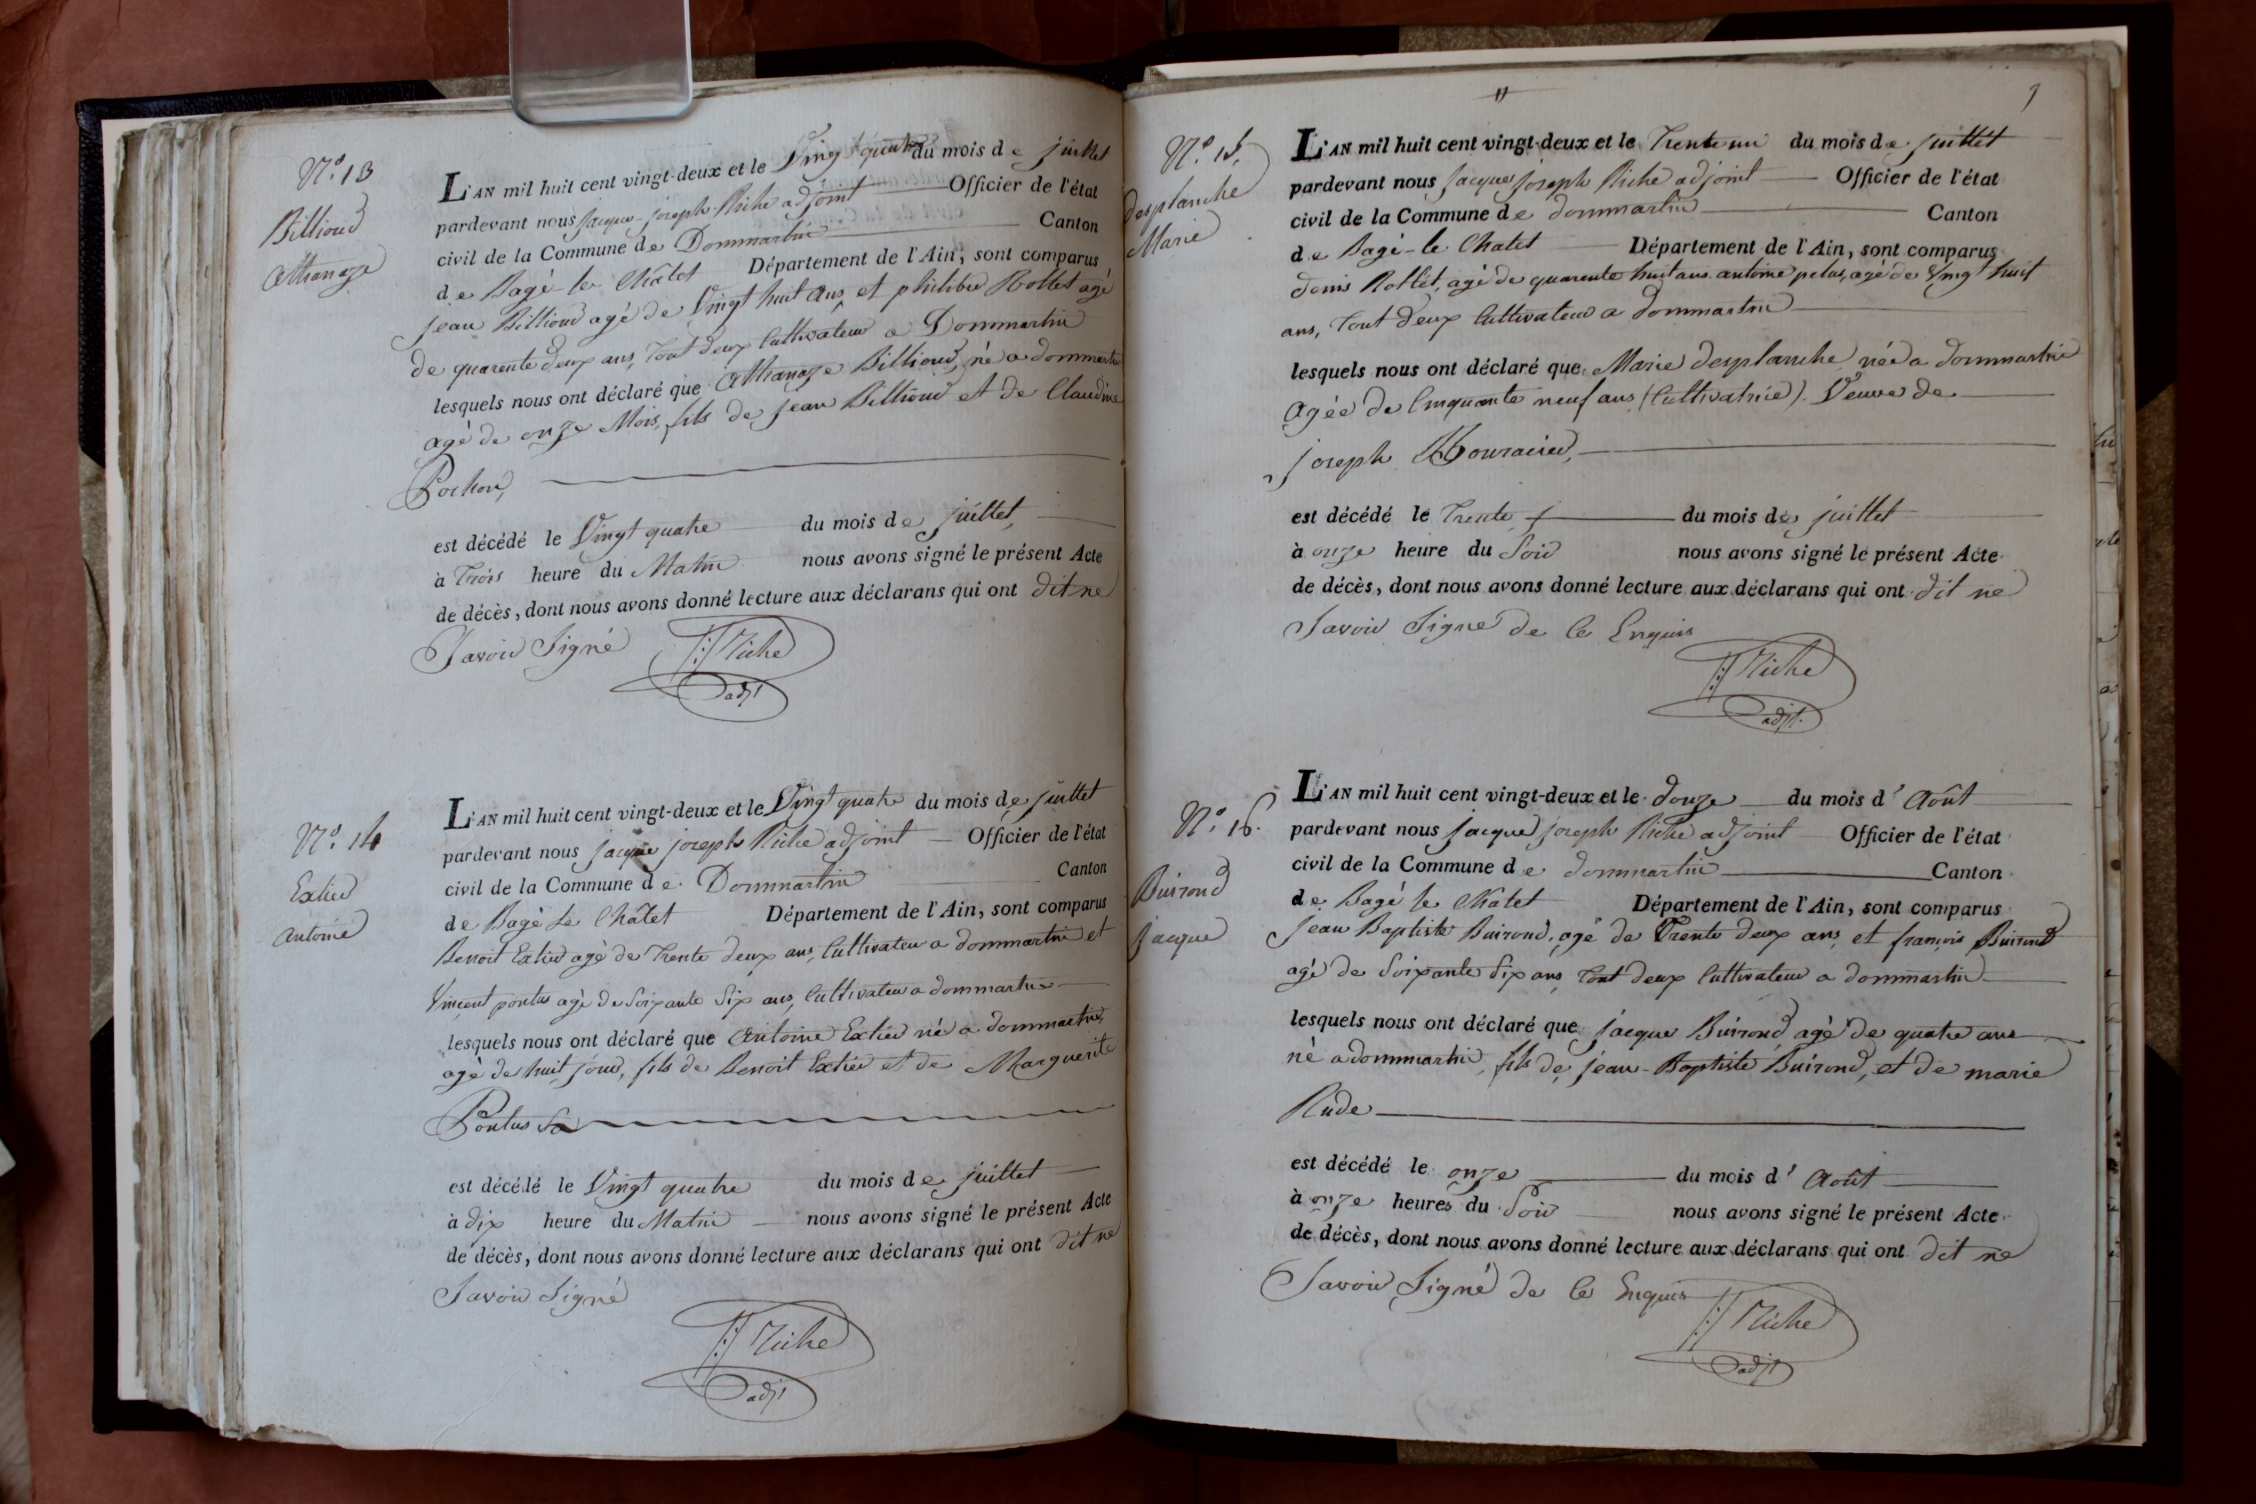 N.o 13
Billioud
Athanaze
L'AN mil huit cent vingt-deux et le Vingt quatre du mois de juillet
pardevant nous Jacque joseph Riche adjoint Officier de l'état
civil de la Commune de Dommartin Canton
de Bagé le Châtet Département de l'Ain, sont comparus
jean Billioud agé de Vingt huit ans, et philibre Rollet agé
de quarente deux ans, Tout deux Cultivateur a Dommartin
lesquels nous ont déclaré que Athanaze Billioud, né a dommartin
agé de onze Mois, fils de jean Billioud et de Claudine
Pochon,
est décédé le Vingt quatre du mois de juillet,
à Trois heure du Matin nous avons signé le présent Acte
de décès, dont nous avons donné lecture aux déclarans qui ont dit ne
Savoir Signé
Riche
adjt
N.o 14
Extier
antoine
L'AN mil huit cent vingt-deux et le Vingt quatre du mois de juillet
pardevant nous jacque joseph Riche adjoint Officier de l'état
civil de la Commune de Dommartin Canton
de Bagé Le Châtet Département de l'Ain, sont comparus
Benoit Extier agé de Trente deux ans, Cultivateur a dommartin et
Vincent pontus agé de Soixante Six ans, Cultivateur a dommartin
lesquels nous ont déclaré que antoine Extier né a dommartin,
agé de huit jour, fils de Benoit Extier et de Marguerite
Pontus
est décédé le Vingt quatre du mois de juillet
à dix heure du Matin nous avons signé le présent Acte
de décès, dont nous avons donné lecture aux déclarans qui ont dit ne
Savoir Signé
Riche
adjt
N.o 15.
desplanche
Marie
L'AN mil huit cent vingt-deux et le Trente un du mois de juillet
pardevant nous jacque joseph Riche adjoint Officier de l'état
civil de la Commune de dommartin Canton
de Bagé-le Chatet Département de l'Ain, sont comparus
denis Rollet, agé de quarente huit ans. antoine pelus, agé de Vingt huit
ans, Tout deux Cultivateur a dommartin
lesquels nous ont déclaré que Marie desplanche née a dommartin
agée de Cinquante neuf ans (Cultivatrice). Veuve de
joseph
est décédé le Trente du mois de juillet
à onze heure du Soir nous avons signé le présent Acte
de décès, dont nous avons donné lecture aux déclarans qui ont dit ne
Savoir Signé de Ce Enquis
Riche
adjt.
N.o 16.
Buirond
jacque
L'AN mil huit cent vingt-deux et le douze du mois d' Août
pardevant nous jacque joseph Riche adjoint Officier de l'état
civil de la Commune de dommartin Canton
de Bagé le Chatet Département de l'Ain, sont comparus
jean Baptiste Buirond, agé de Trente deux ans, et francois Buirond
agé de Soixante Six ans, Tout deux Cultivateur a dommartin
lesquels nous ont déclaré que jacque Buirond, agé de quatre ans
né a dommartin, fils de jean-Baptiste Buirond, et de marie
Rude
est décédé le onze du mois d' Août
à onze heures du Soir nous avons signé le présent Acte
de décès, dont nous avons donné lecture aux déclarans qui ont dit ne
Savoir Signé de Ce Enquis
Riche
adjt